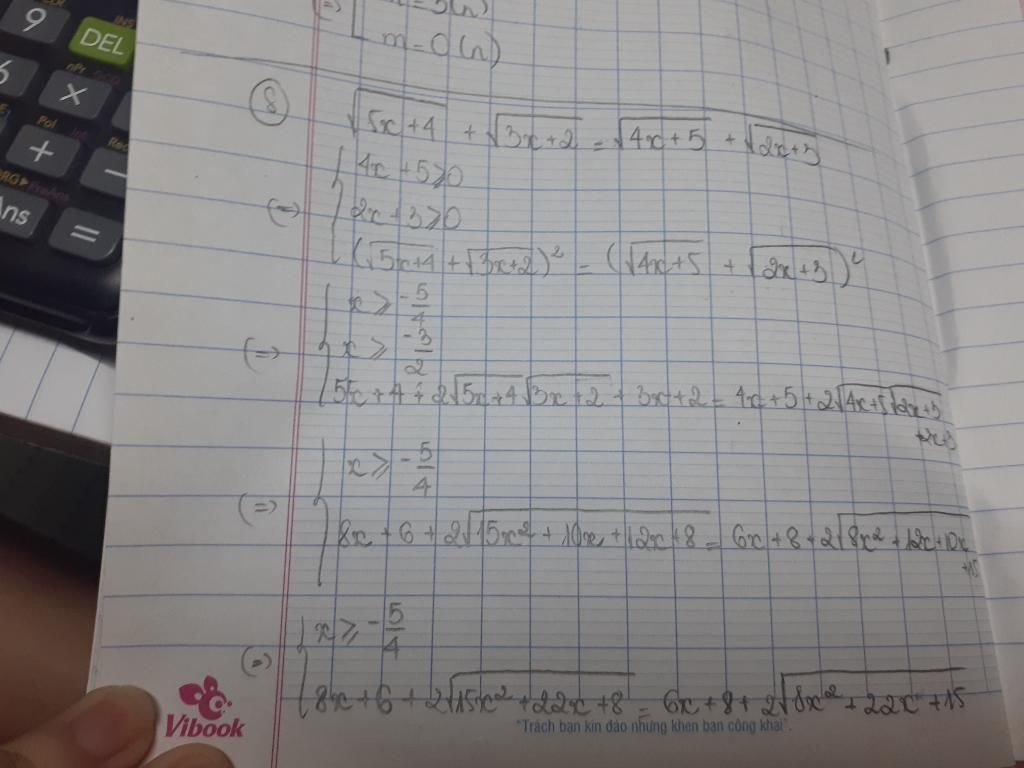 9
DEL
6
×
+
−
Ans
=
Pol
m = 0 (n)
⑧ √(5x+4) + √(3x+2) = √(4x+5) + √(2x+3)
4x + 5 ≥ 0
(=) 2x + 3 ≥ 0
(√(5x+4) + √(3x+2))² = (√(4x+5) + √(2x+3))²
x ≥ -5/4
(=) x ≥ -3/2
5x + 4 + 2√(5x+4)√(3x+2) + 3x+2 = 4x+5+2√(4x+5)√(2x+3)
+2x+3
x ≥ -5/4
(=) 8x + 6 + 2√(15x² + 10x + 12x + 8) = 6x + 8 + 2√(8x² + 12x + 10x
+15)
x ≥ -5/4
(=) 8x + 6 + 2√(15x² + 22x + 8) = 6x + 8 + 2√(8x² + 22x + 15)
Vibook
"Trách bạn kín đáo nhưng khen bạn công khai".